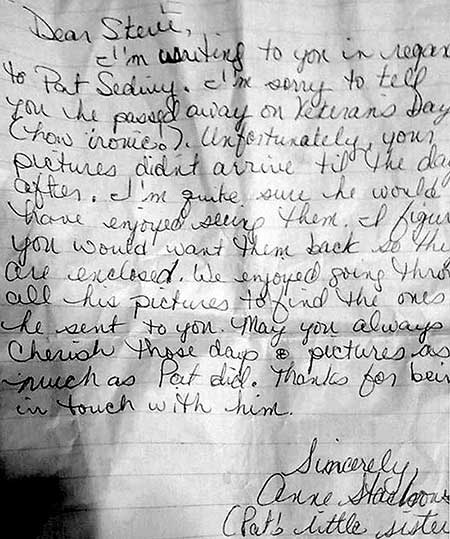 Dear Steve,
I'm writing to you in regar
to Pat Sediny. I'm sorry to tell
you he passed away on Veterans Day
(how ironic.). Unfortunately, your
pictures didn't arrive til the day
after. I'm quite sure he would
have enjoyed seeing them. I figur
you would want them back so the
are enclosed. We enjoyed going thro
all his pictures to find the ones
he sent to you. May you always
Cherish those days & pictures as
much as Pat did. Thanks for bein
in touch with him.
Sincerely,
Anne
(Pat's little sister